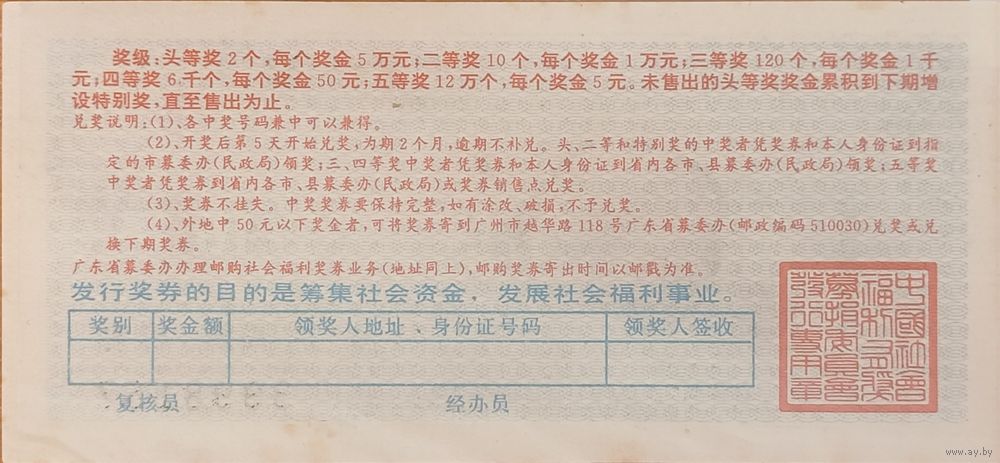 奖级:头等奖2个,每个奖金5万元;二等奖10个,每个奖金1万元;三等奖120个,每个奖金1千
元;四等奖6千个,每个奖金50元;五等奖12万个,每个奖金5元。未售出的头等奖奖金累积到下期增
设特别奖,直至售出为止。
兑奖说明:(1)、各中奖号码兼中可以兼得。
(2)、开奖后第5天开始兑奖,为期2个月,逾期不补兑。头、二等和特别奖的中奖者凭奖券和本人身份证到指
定的市募委办(民政局)领奖;三、四等奖中奖者凭奖券和本人身份证到省内各市、县募委办(民政局)领奖;五等奖
中奖者凭奖券到省内各市、县募委办(民政局)或奖券销售点兑奖。
(3)、奖券不挂失。中奖奖券要保持完整,如有涂改、破损,不予兑奖。
(4)、外地中50元以下奖金者,可将奖券寄到广州市越华路118号广东省募委办(邮政编码510030)兑奖或兑
换下期奖券。
广东省募委办办理邮购社会福利奖券业务(地址同上),邮购奖券寄出时间以邮戳为准。
发行奖券的目的是筹集社会资金,发展社会福利事业。
奖别 奖金额 领奖人地址、身份证号码 领奖人签收
复核员 经办员
中國社会
福利有奖
募捐委員會
發行專用章
www.ay.by